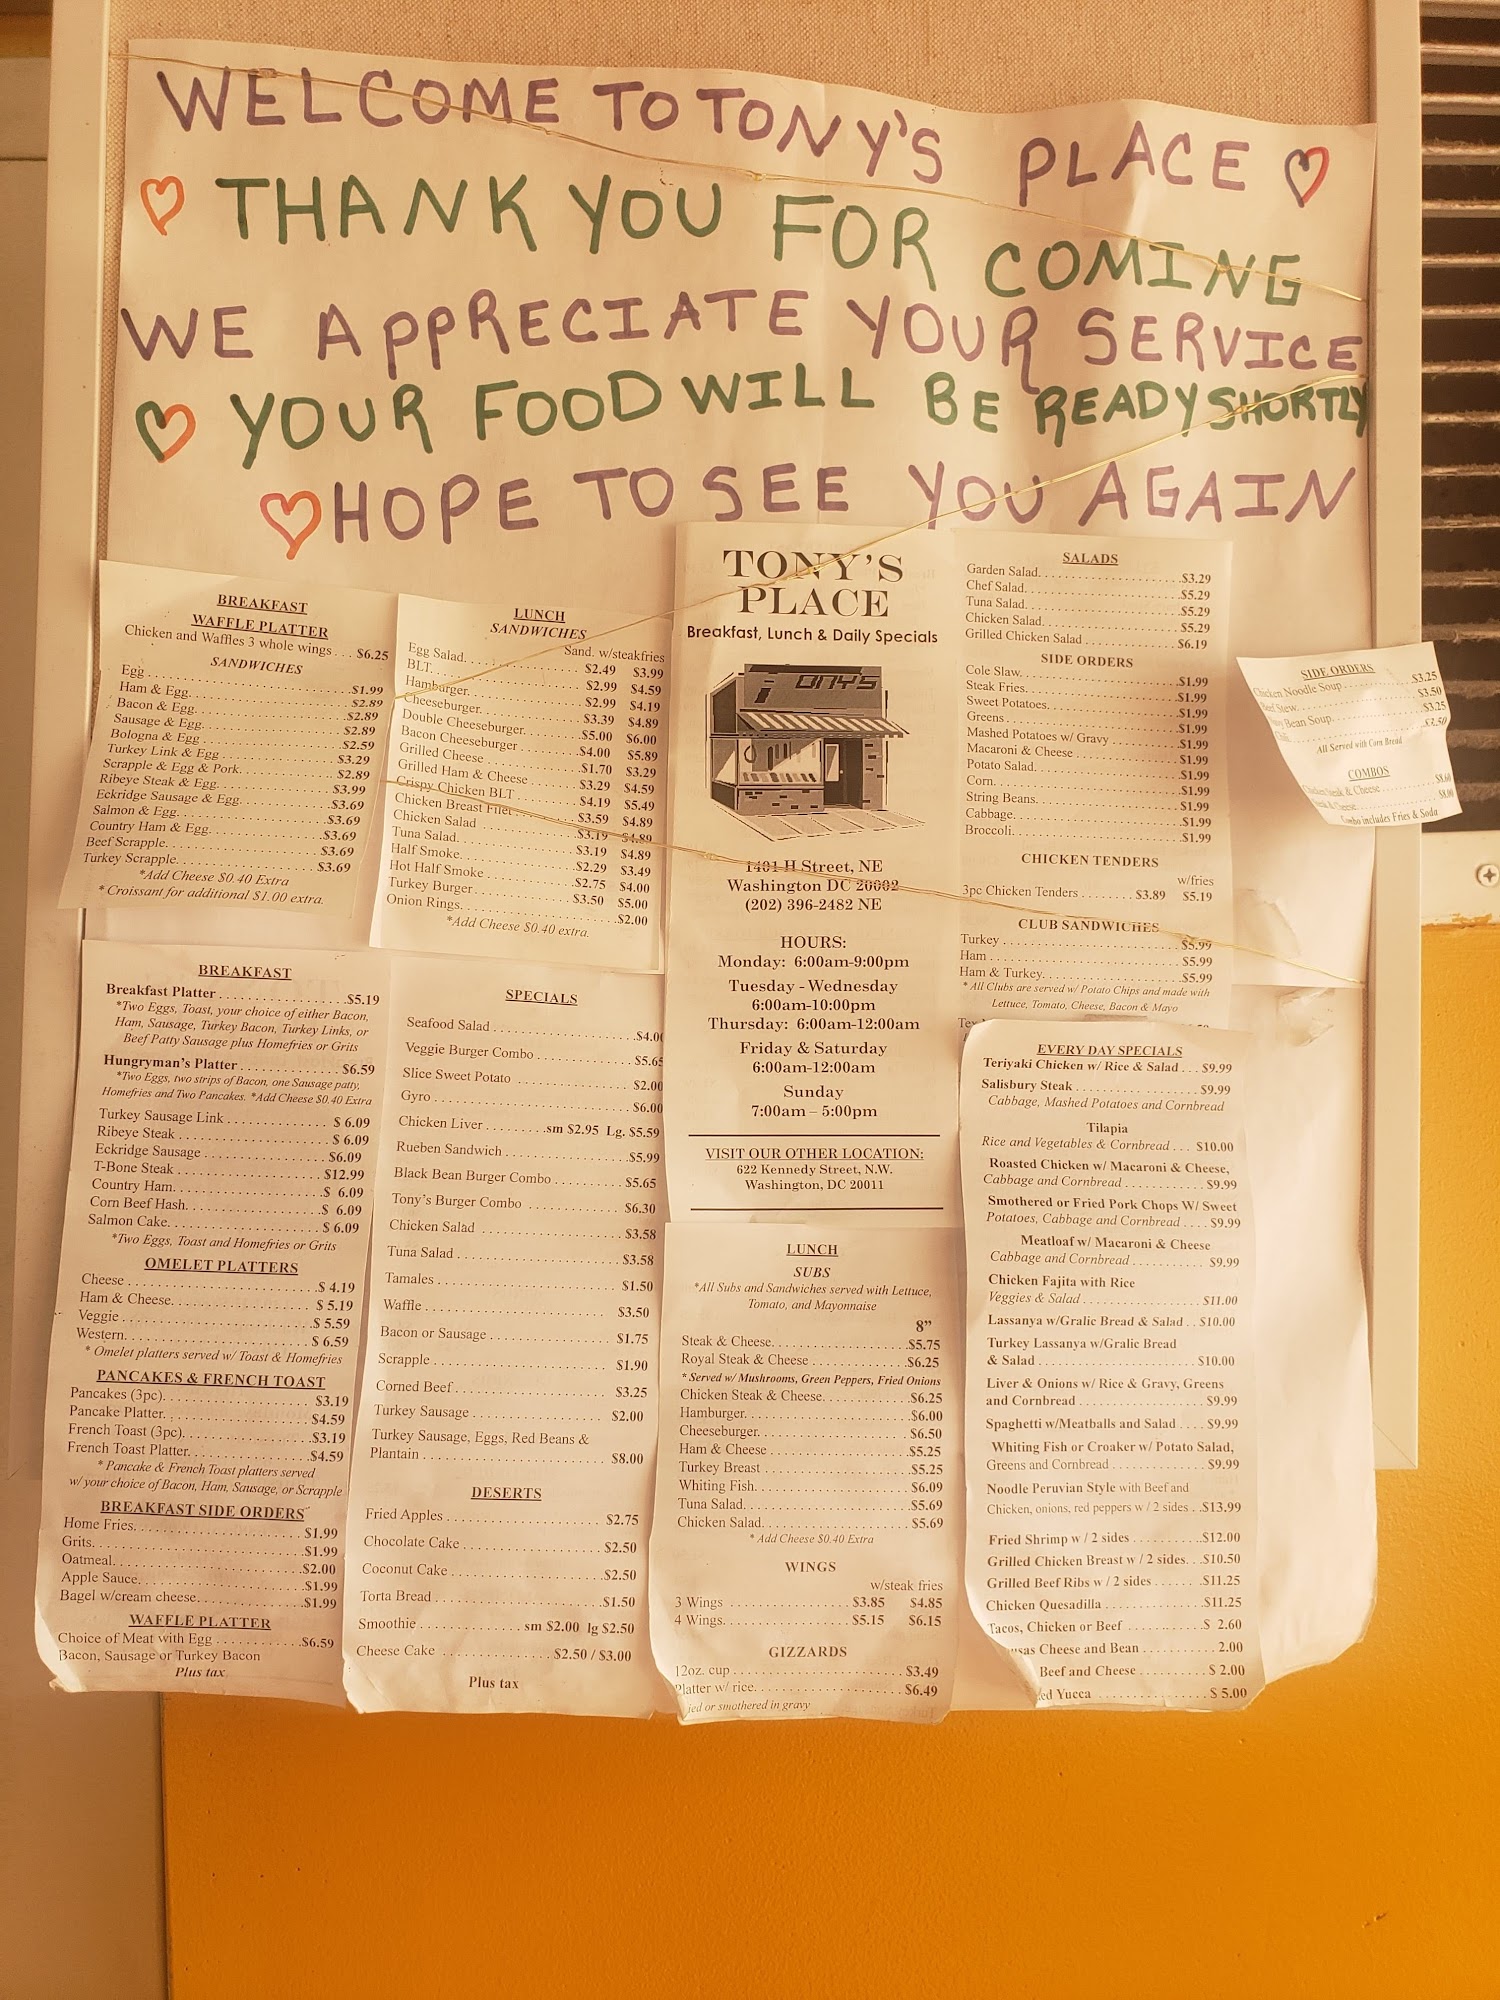 WELCOME TO TONY'S PLACE
THANK YOU FOR COMING
WE APPRECIATE YOUR SERVICE
YOUR FOOD WILL BE READY SHORTLY
HOPE TO SEE YOU AGAIN
BREAKFAST
WAFFLE PLATTER
Chicken and Waffles 3 whole wings . . . $6.25
SANDWICHES
Egg $1.99
Ham & Egg $2.89
Bacon & Egg $2.89
Sausage & Egg $2.89
Bologna & Egg $2.59
Turkey Link & Egg $3.29
Scrapple & Egg & Pork $2.89
Ribeye Steak & Egg $3.99
Eckridge Sausage & Egg $3.69
Salmon & Egg $3.69
Country Ham & Egg $3.69
Beef Scrapple $3.69
Turkey Scrapple $3.69
*Add Cheese $0.40 Extra
*Croissant for additional $1.00 extra.
LUNCH
SANDWICHES
Sand. w/steakfries
Egg Salad $2.49 $3.99
BLT $2.99 $4.59
Hamburger $2.99 $4.19
Cheeseburger $3.39 $4.89
Double Cheeseburger $5.00 $6.00
Bacon Cheeseburger $4.00 $5.89
Grilled Cheese $1.70 $3.29
Grilled Ham & Cheese $3.29 $4.59
Crispy Chicken BLT $4.19 $5.49
Chicken Breast Filet $3.59 $4.89
Chicken Salad $3.19 $4.89
Tuna Salad $3.19 $4.89
Half Smoke $2.29 $3.49
Hot Half Smoke $2.75 $4.00
Turkey Burger $3.50 $5.00
Onion Rings $2.00
*Add Cheese $0.40 extra.
TONY'S
PLACE
Breakfast, Lunch & Daily Specials
TONY'S
1401 H Street, NE
Washington DC 20002
(202) 396-2482 NE
HOURS:
Monday: 6:00am-9:00pm
Tuesday - Wednesday
6:00am-10:00pm
Thursday: 6:00am-12:00am
Friday & Saturday
6:00am-12:00am
Sunday
7:00am – 5:00pm
VISIT OUR OTHER LOCATION:
622 Kennedy Street, N.W.
Washington, DC 20011
SALADS
Garden Salad $3.29
Chef Salad $5.29
Tuna Salad $5.29
Chicken Salad $5.29
Grilled Chicken Salad $6.19
SIDE ORDERS
Cole Slaw $1.99
Steak Fries $1.99
Sweet Potatoes $1.99
Greens $1.99
Mashed Potatoes w/ Gravy $1.99
Macaroni & Cheese $1.99
Potato Salad $1.99
Corn $1.99
String Beans $1.99
Cabbage $1.99
Broccoli $1.99
CHICKEN TENDERS
w/fries
3pc Chicken Tenders $3.89 $5.19
CLUB SANDWICHES
Turkey $5.99
Ham $5.99
Ham & Turkey $5.99
* All Clubs are served w/ Potato Chips and made with
Lettuce, Tomato, Cheese, Bacon & Mayo
SIDE ORDERS
Chicken Noodle Soup $3.25
Beef Stew $3.50
Bean Soup $3.25
$3.50
All Served with Corn Bread
COMBOS
Chicken Steak & Cheese $8.60
Steak & Cheese $8.00
Combo includes Fries & Soda
BREAKFAST
Breakfast Platter $5.19
*Two Eggs, Toast, your choice of either Bacon,
Ham, Sausage, Turkey Bacon, Turkey Links, or
Beef Patty Sausage plus Homefries or Grits
Hungryman's Platter $6.59
*Two Eggs, two strips of Bacon, one Sausage patty,
Homefries and Two Pancakes. *Add Cheese $0.40 Extra
Turkey Sausage Link $ 6.09
Ribeye Steak $ 6.09
Eckridge Sausage $6.09
T-Bone Steak $12.99
Country Ham $ 6.09
Corn Beef Hash $ 6.09
Salmon Cake $ 6.09
*Two Eggs, Toast and Homefries or Grits
OMELET PLATTERS
Cheese $ 4.19
Ham & Cheese $ 5.19
Veggie $ 5.59
Western $ 6.59
* Omelet platters served w/ Toast & Homefries
PANCAKES & FRENCH TOAST
Pancakes (3pc) $3.19
Pancake Platter $4.59
French Toast (3pc) $3.19
French Toast Platter $4.59
* Pancake & French Toast platters served
w/ your choice of Bacon, Ham, Sausage, or Scrapple
BREAKFAST SIDE ORDERS
Home Fries $1.99
Grits $1.99
Oatmeal $2.00
Apple Sauce $1.99
Bagel w/cream cheese $1.99
WAFFLE PLATTER
Choice of Meat with Egg $6.59
Bacon, Sausage or Turkey Bacon
Plus tax
SPECIALS
Seafood Salad $4.00
Veggie Burger Combo $5.65
Slice Sweet Potato $2.00
Gyro $6.00
Chicken Liver sm $2.95 Lg. $5.59
Rueben Sandwich $5.99
Black Bean Burger Combo $5.65
Tony's Burger Combo $6.30
Chicken Salad $3.58
Tuna Salad $3.58
Tamales $1.50
Waffle $3.50
Bacon or Sausage $1.75
Scrapple $1.90
Corned Beef $3.25
Turkey Sausage $2.00
Turkey Sausage, Eggs, Red Beans &
Plantain $8.00
DESERTS
Fried Apples $2.75
Chocolate Cake $2.50
Coconut Cake $2.50
Torta Bread $1.50
Smoothie sm $2.00 lg $2.50
Cheese Cake $2.50 / $3.00
Plus tax
LUNCH
SUBS
*All Subs and Sandwiches served with Lettuce,
Tomato, and Mayonnaise
8”
Steak & Cheese $5.75
Royal Steak & Cheese $6.25
* Served w/ Mushrooms, Green Peppers, Fried Onions
Chicken Steak & Cheese $6.25
Hamburger $6.00
Cheeseburger $6.50
Ham & Cheese $5.25
Turkey Breast $5.25
Whiting Fish $6.09
Tuna Salad $5.69
Chicken Salad $5.69
* Add Cheese $0.40 Extra
WINGS
w/steak fries
3 Wings $3.85 $4.85
4 Wings $5.15 $6.15
GIZZARDS
12oz. cup $3.49
Platter w/ rice $6.49
ied or smothered in gravy
EVERY DAY SPECIALS
Teriyaki Chicken w/ Rice & Salad . . . $9.99
Salisbury Steak $9.99
Cabbage, Mashed Potatoes and Cornbread
Tilapia
Rice and Vegetables & Cornbread . . . $10.00
Roasted Chicken w/ Macaroni & Cheese,
Cabbage and Cornbread $9.99
Smothered or Fried Pork Chops W/ Sweet
Potatoes, Cabbage and Cornbread . . . . $9.99
Meatloaf w/ Macaroni & Cheese
Cabbage and Cornbread $9.99
Chicken Fajita with Rice
Veggies & Salad $11.00
Lassanya w/Gralic Bread & Salad . . $10.00
Turkey Lassanya w/Gralic Bread
& Salad $10.00
Liver & Onions w/ Rice & Gravy, Greens
and Cornbread $9.99
Spaghetti w/Meatballs and Salad . . . . $9.99
Whiting Fish or Croaker w/ Potato Salad,
Greens and Cornbread $9.99
Noodle Peruvian Style with Beef and
Chicken, onions, red peppers w / 2 sides . . $13.99
Fried Shrimp w / 2 sides $12.00
Grilled Chicken Breast w / 2 sides. . . $10.50
Grilled Beef Ribs w / 2 sides $11.25
Chicken Quesadilla $11.25
Tacos, Chicken or Beef $ 2.60
usas Cheese and Bean 2.00
Beef and Cheese $ 2.00
ed Yucca $ 5.00